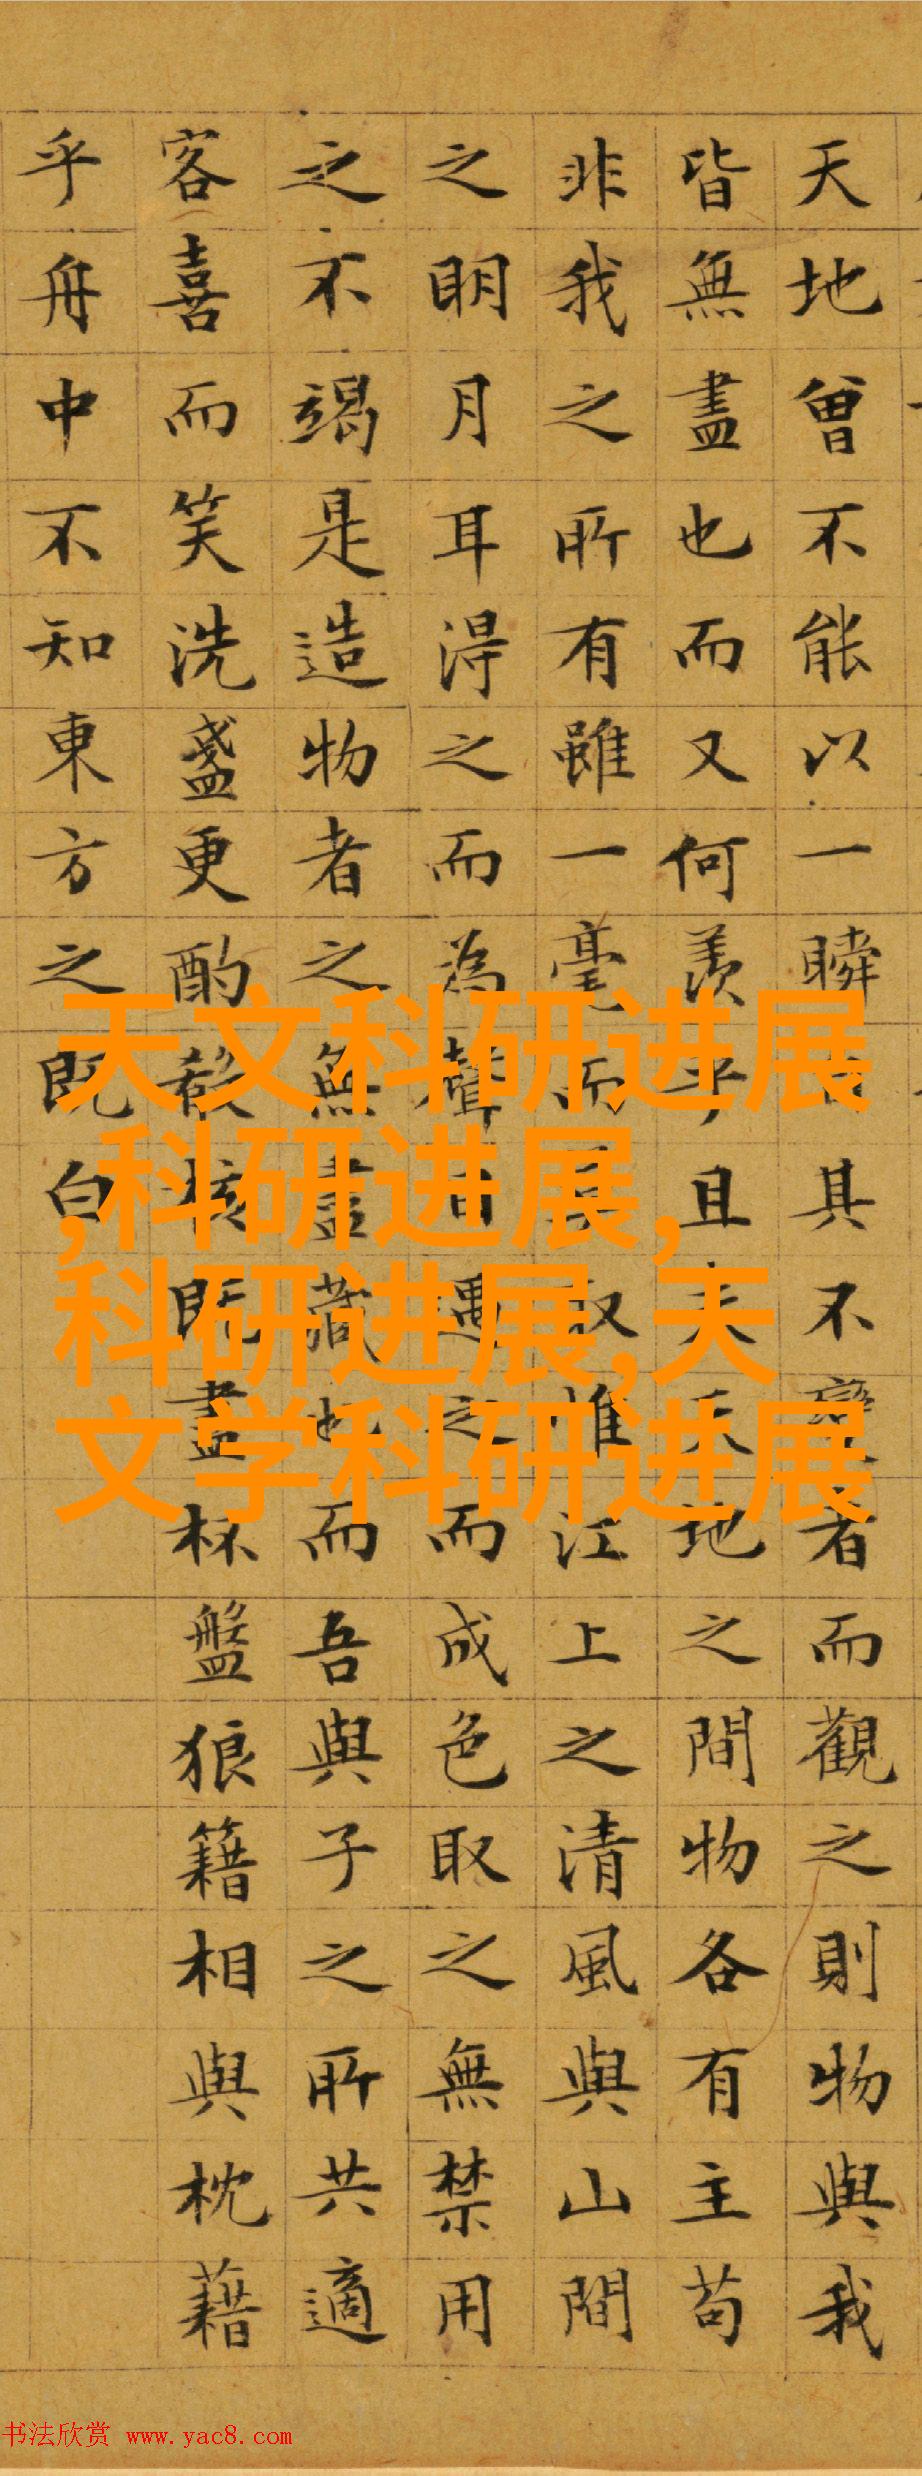 天地曾不能以一瞬其不變者而觀之則物與我
皆無盡也而又何羨乎且夫天地之間物各有主苟
非我之所有雖一毫而取惟江上之清風與山間
之明月耳得之而為聲目遇之而成色取之無禁用
之不竭是造物者之無盡藏也而吾與子之所共適
客喜而笑洗盞更酌殽核既盡杯盤狼籍相與枕藉
乎舟中不知東方之既白
天文科研进展
,科研进展,
科研进展,天
文学科研进展
书法欣赏 www.yac8.com